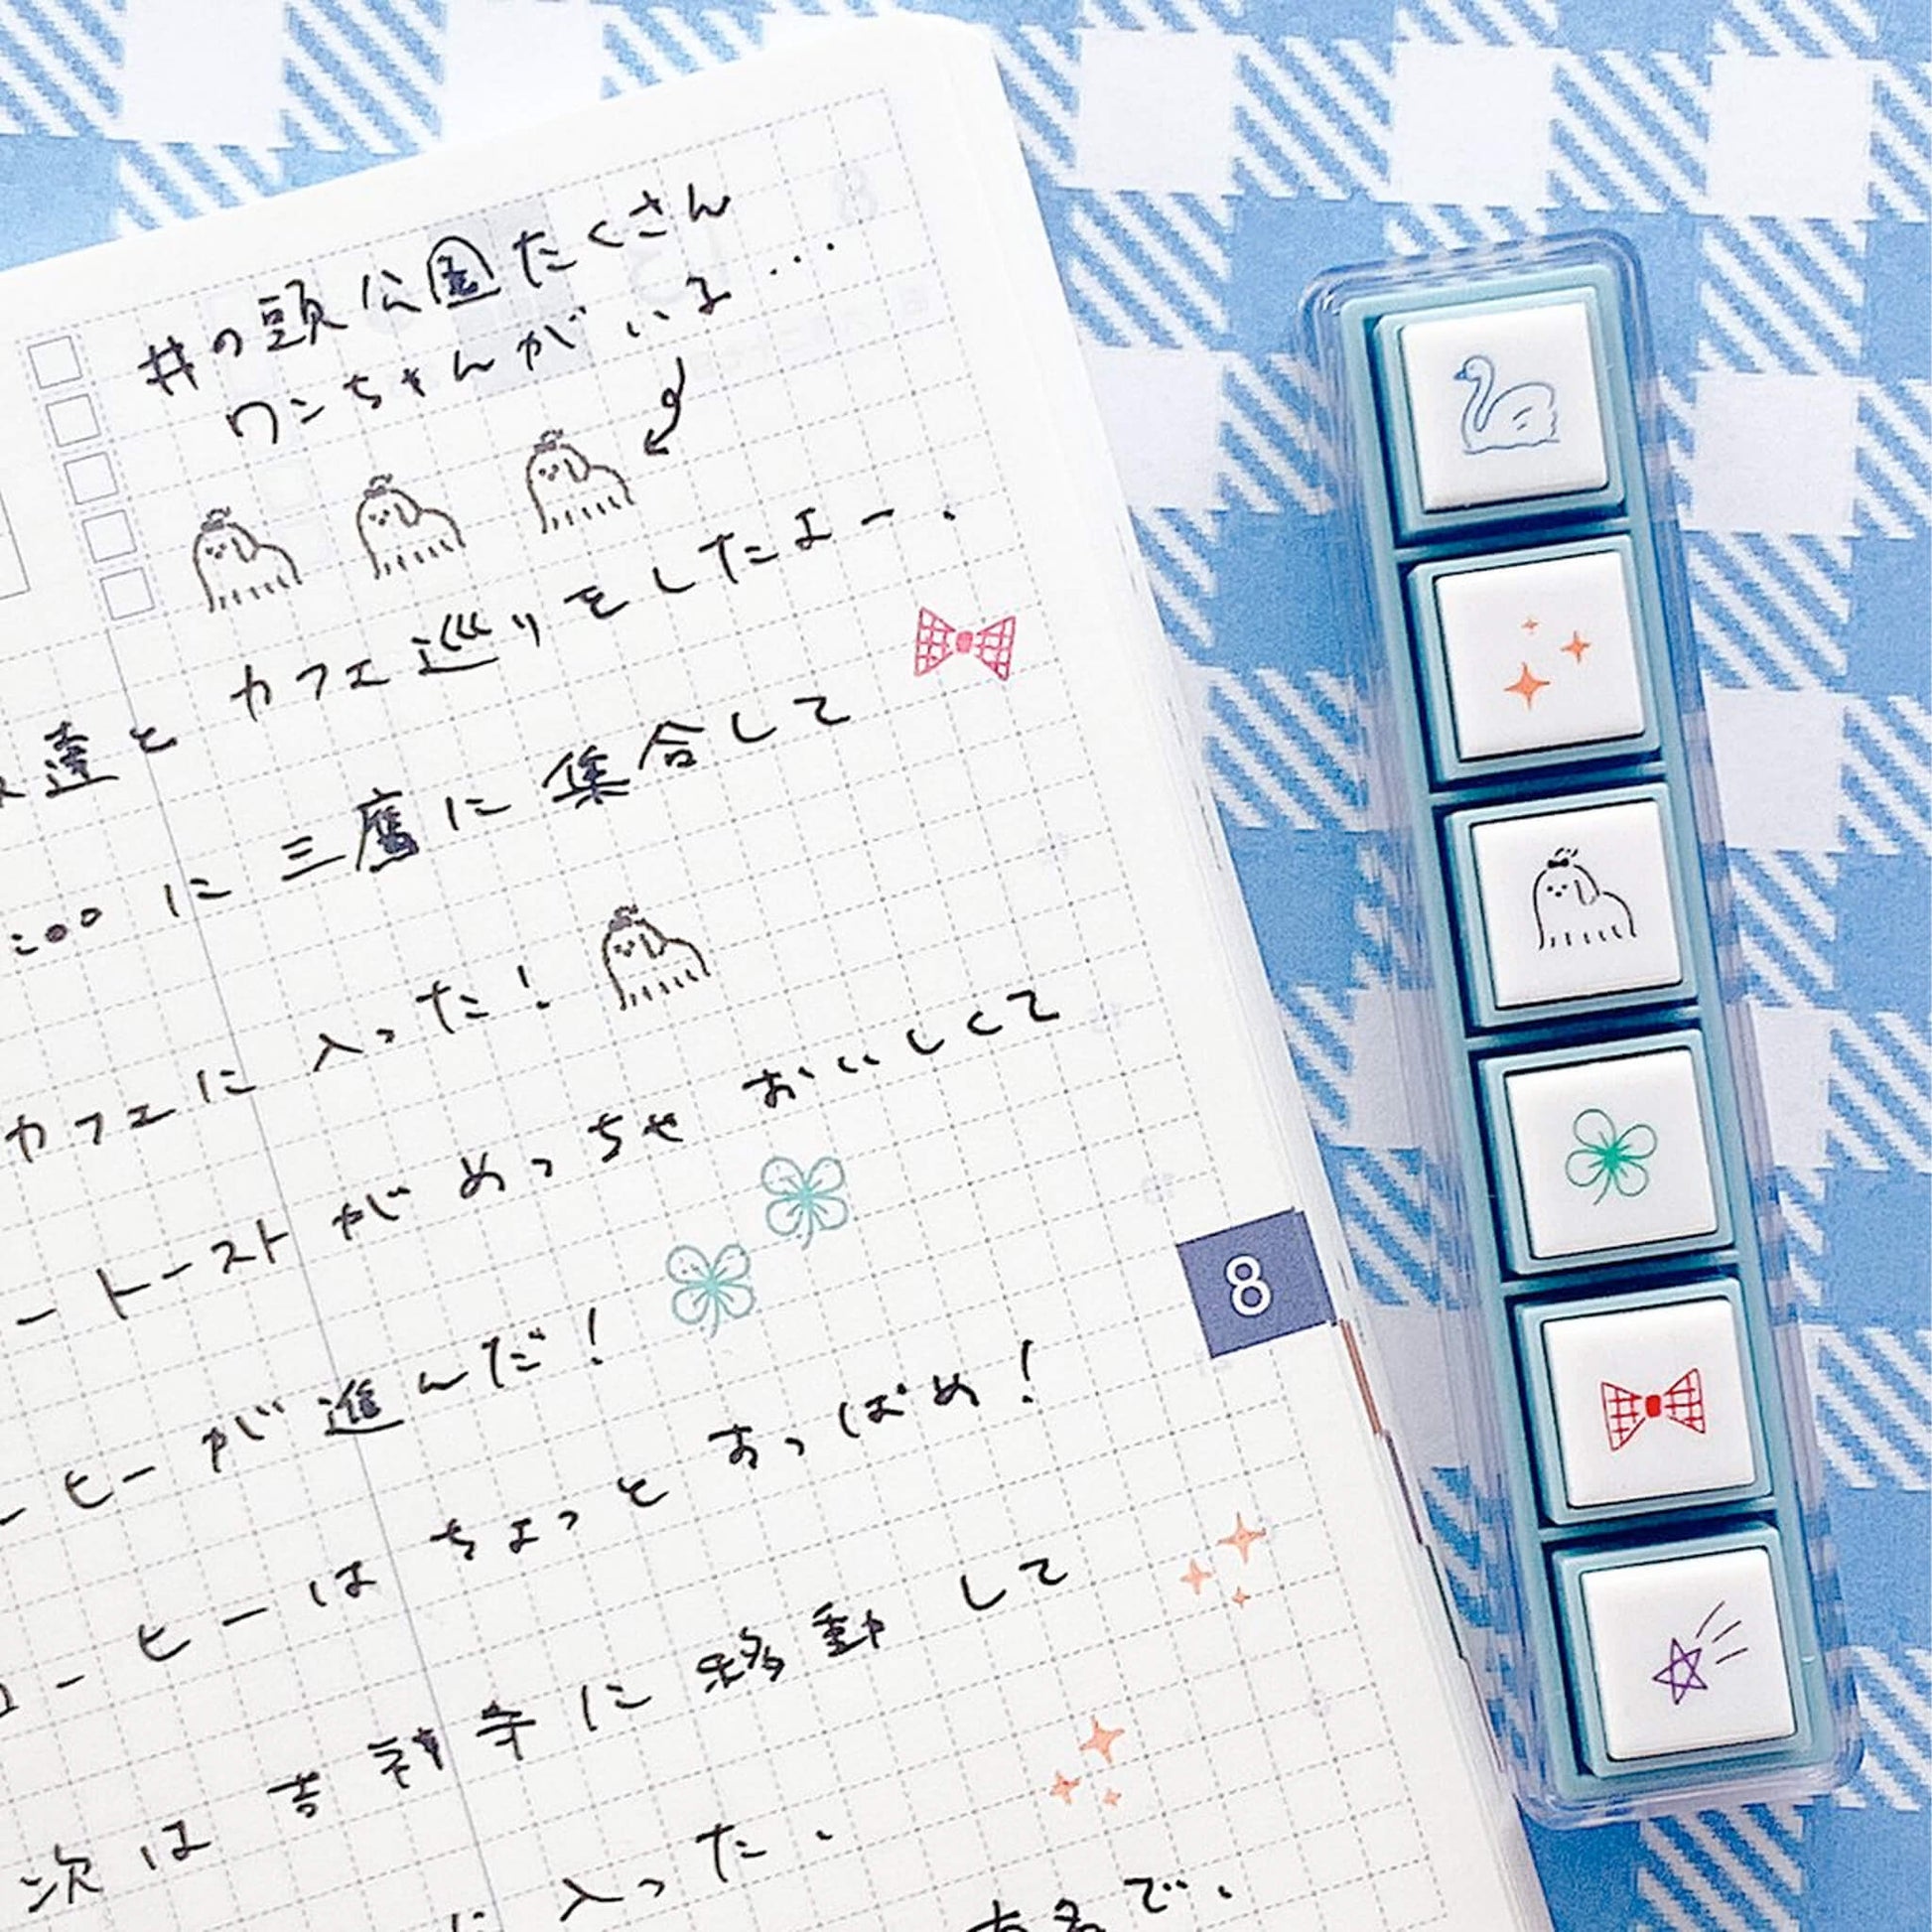 井の頭公園たくさん
ワンちゃんがいる…
達とカフェ巡りをしたよー.
に三鷹に集合して
カフェに入った！
ートーストがめっちゃおいしくて
ーヒーが進んだ！
8
コーヒーはちょっとすっぱめ！
次は吉祥寺に移動して
に入った.
有名で.